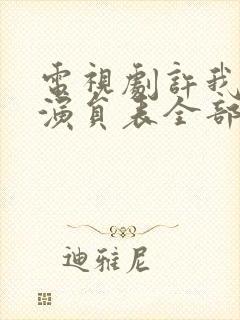 電視劇許我
演員表全部
迪雅尼